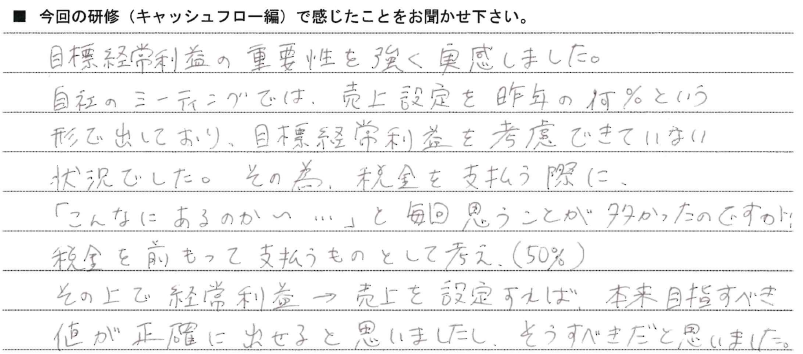 ■ 今回の研修（キャッシュフロー編）で感じたことをお聞かせ下さい。
目標経常利益の重要性を強く実感しました。
自社のミーティングでは、売上設定を昨年の何％という
形で出しており、目標経常利益を考慮できていない
状況でした。その為、税金を支払う際に、
「こんなにあるのかい…」と毎回思うことが多かったのですが
税金を前もって支払うものとして考え、（50％）
その上で経常利益→売上を設定すれば、本来目指すべき
値が正確に出せると思いましたし、そうすべきだと思いました。